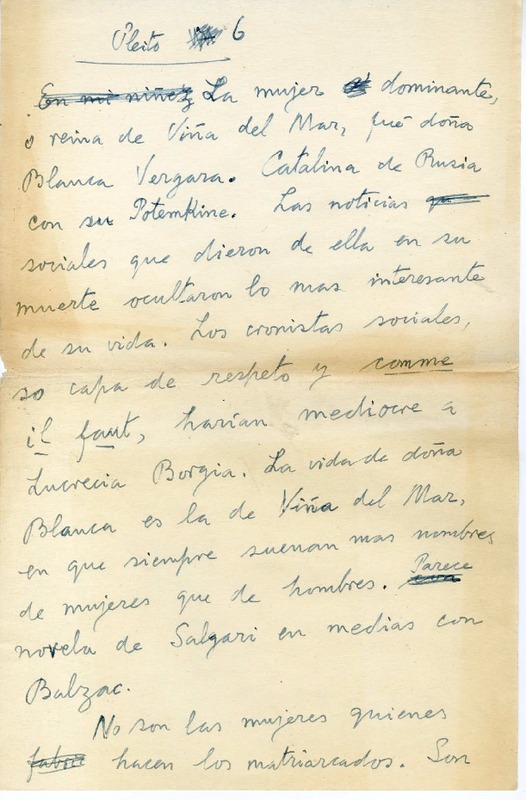 Pleito 6
En mi niñez La mujer dominante,
o reina de Viña del Mar, fué doña
Blanca Vergara. Catalina de Rusia
con su Potemkine. Las noticias
sociales que dieron de ella en su
muerte ocultaron lo mas interesante
de su vida. Los cronistas sociales,
so capa de respeto y comme
il faut, harían mediocre a
Lucrecia Borgia. La vida de doña
Blanca es la de Viña del Mar,
en que siempre suenan mas nombres
de mujeres que de hombres. Parece
novela de Salgari en medias con
Balzac.
No son las mujeres quienes
hacen los matriarcados. Son